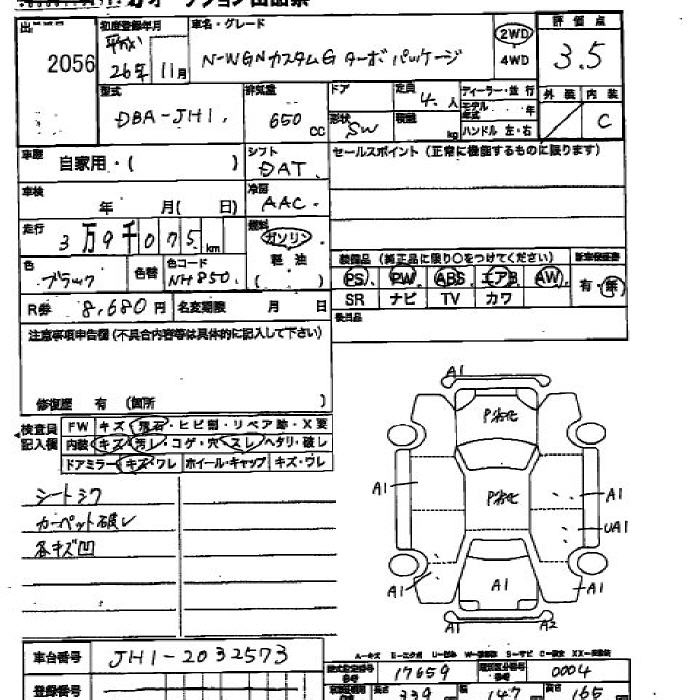 2056
初度登録年月
平成
26年 11月
車名・グレード
N-WGNカスタムG ターボパッケージ
2WD
4WD
評価点
3.5
型式
DBA-JH1.
排気量
650
CC
ドア
形状
SW
定員
4. 人
積載
kg
ディーラー・並行
モデル年式 年
ハンドル 左・右
外装 内装
C
車歴
自家用・( )
シフト
DAT.
セールスポイント (正常に機能するものに限ります)
車検
年 月( 日)
冷房
AAC.
走行
3万9千075 km
燃料
ガソリン
軽油
色
ブラック
色替
色コード
NH850.
装備品 (純正品に限り○をつけてください)
PS PW ABS エアB AW
SR ナビ TV カワ
新車保証書
有・無
後日品
R券 8,680円
名変期限 月 日
注意事項申告欄 (不具合内容等は具体的に記入して下さい)
修復歴 有 (箇所 )
検査員記入欄
FW キズ・飛石・ヒビ割・リペア跡・X要
内装 キズ・汚レ・コゲ・穴・スレ・ヘタリ・破レ
ドアミラー キズ・ワレ ホイール・キャップ キズ・ワレ
シートシワ
カーペット破レ
各キズ凹
A1
A1
A1
UA1
A1
A1
A1
A1
A2
車台番号
JH1-2032573
登録番号
17659
0004
長さ 339
幅 147
高さ 165